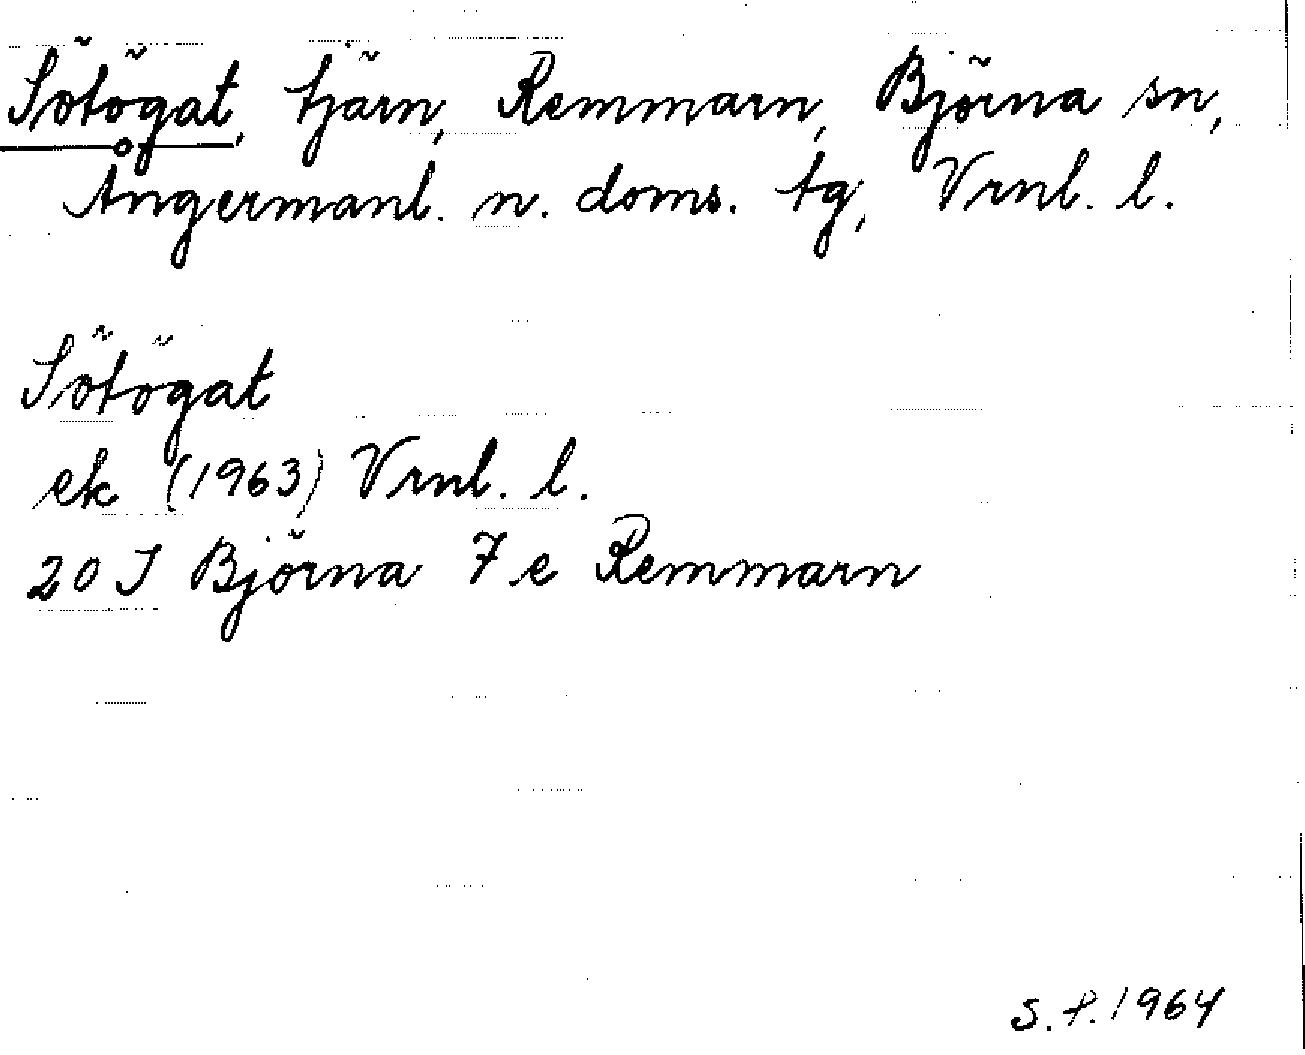 Sötögat, tjärn, Remmarn, Björna sn,
Ångermanl. n. doms. tg, Vrnl. l.
Sötögat
ek (1963) Vrnl. l.
20 J Björna 7 e Remmarn
S. P. 1964